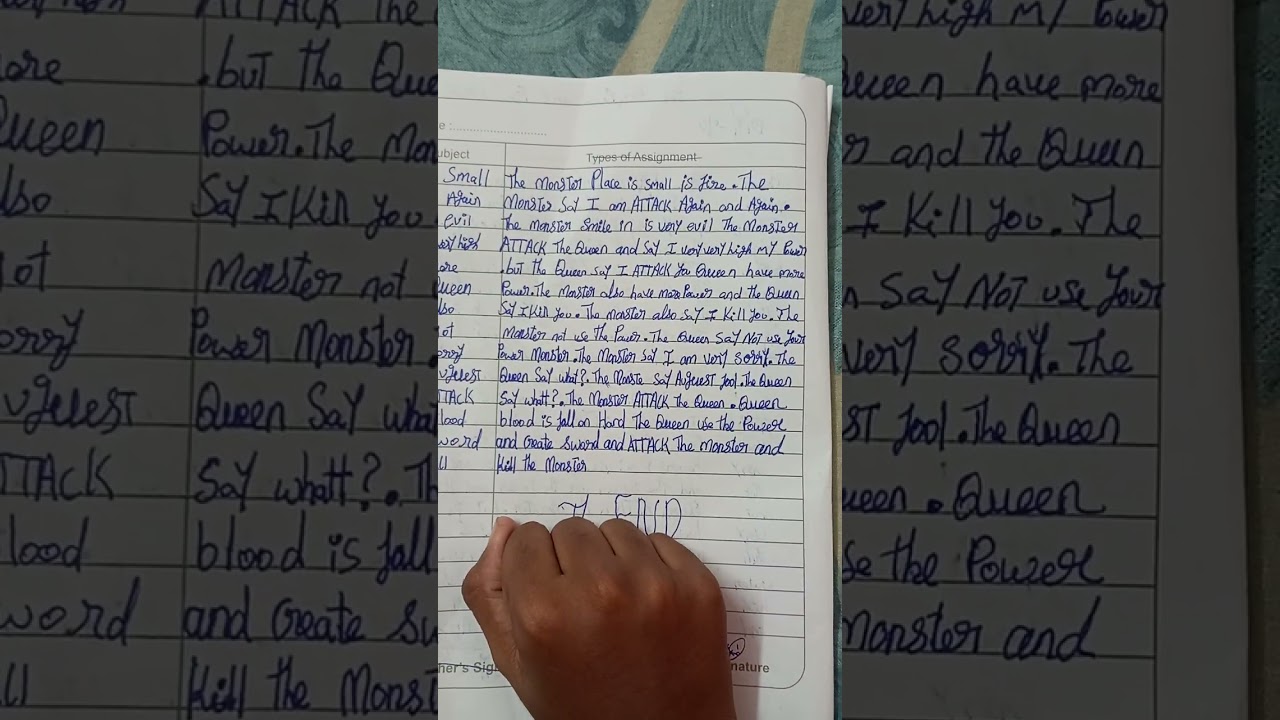 e :............................
ubject Types of Assignment
Small The monster Place is small is fire. The
Again Monster Say I am ATTACK Again and Again.
evil The monster smile in is very evil The Monster
very high ATTACK The Queen and say I very very high my Power
ore .but the Queen say I ATTACK you Queen have more
ueen Power. The monster also have more Power and the Queen
lso Say I Kill you. The monster also say I Kill you. The
ot monster not use the Power. The Queen Say Not use your
orry Power Monster. The Monster Say I am very sorry. The
ugleest Queen Say what?. The Monste Say Augleest fool. The Queen
TTACK Say whatt?. The Monster ATTACK The Queen. Queen
lood blood is fall on Hand The Queen use the Power
word and Create sword and ATTACK The monster and
ll Kill the Monster
END
her's Sig nature